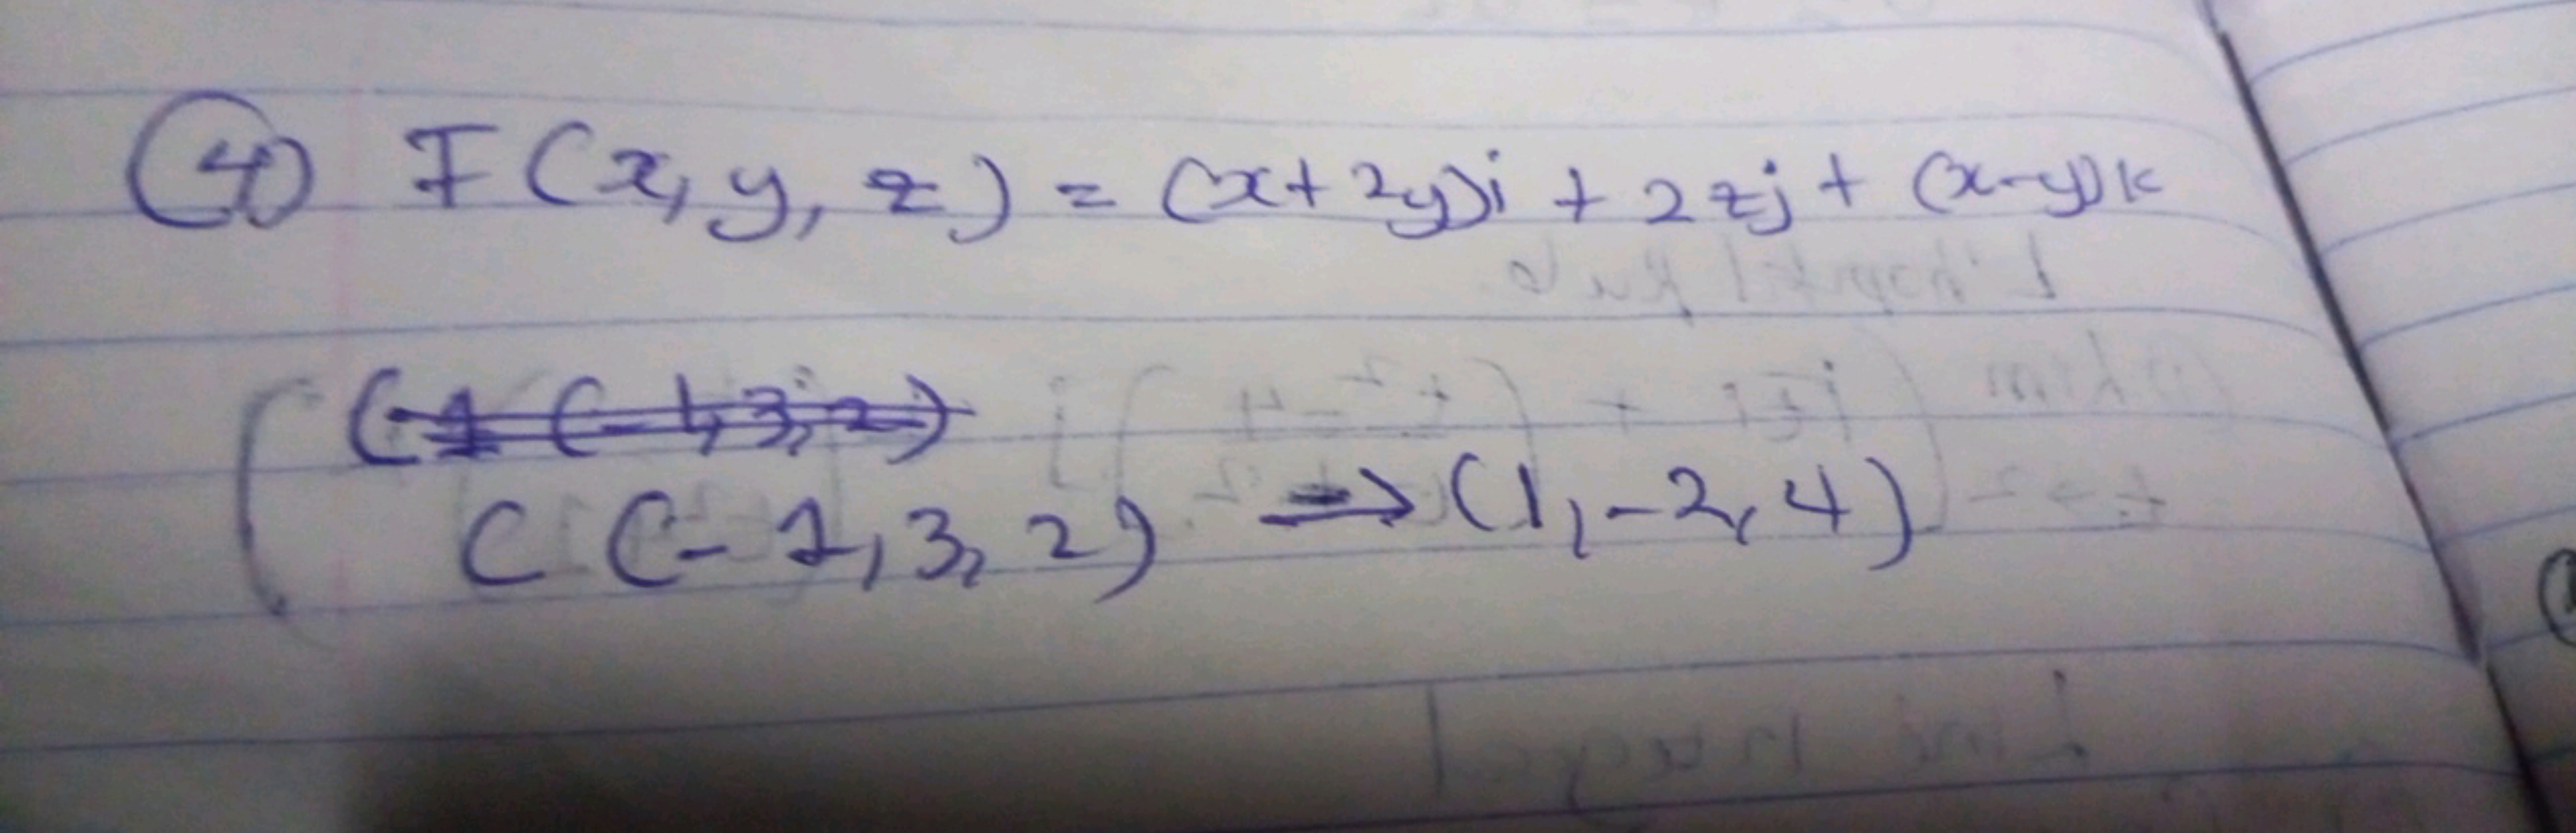 ④ F(x, y, z) = (x+2y)i + 2zj + (x-y)k
(-1 (-1,3,2)
C (-1,3,2) → (1,-2,4)